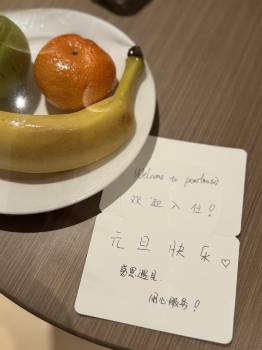 Welcome to
欢迎入住！
元旦快乐♡
感恩遇见
用心服务！